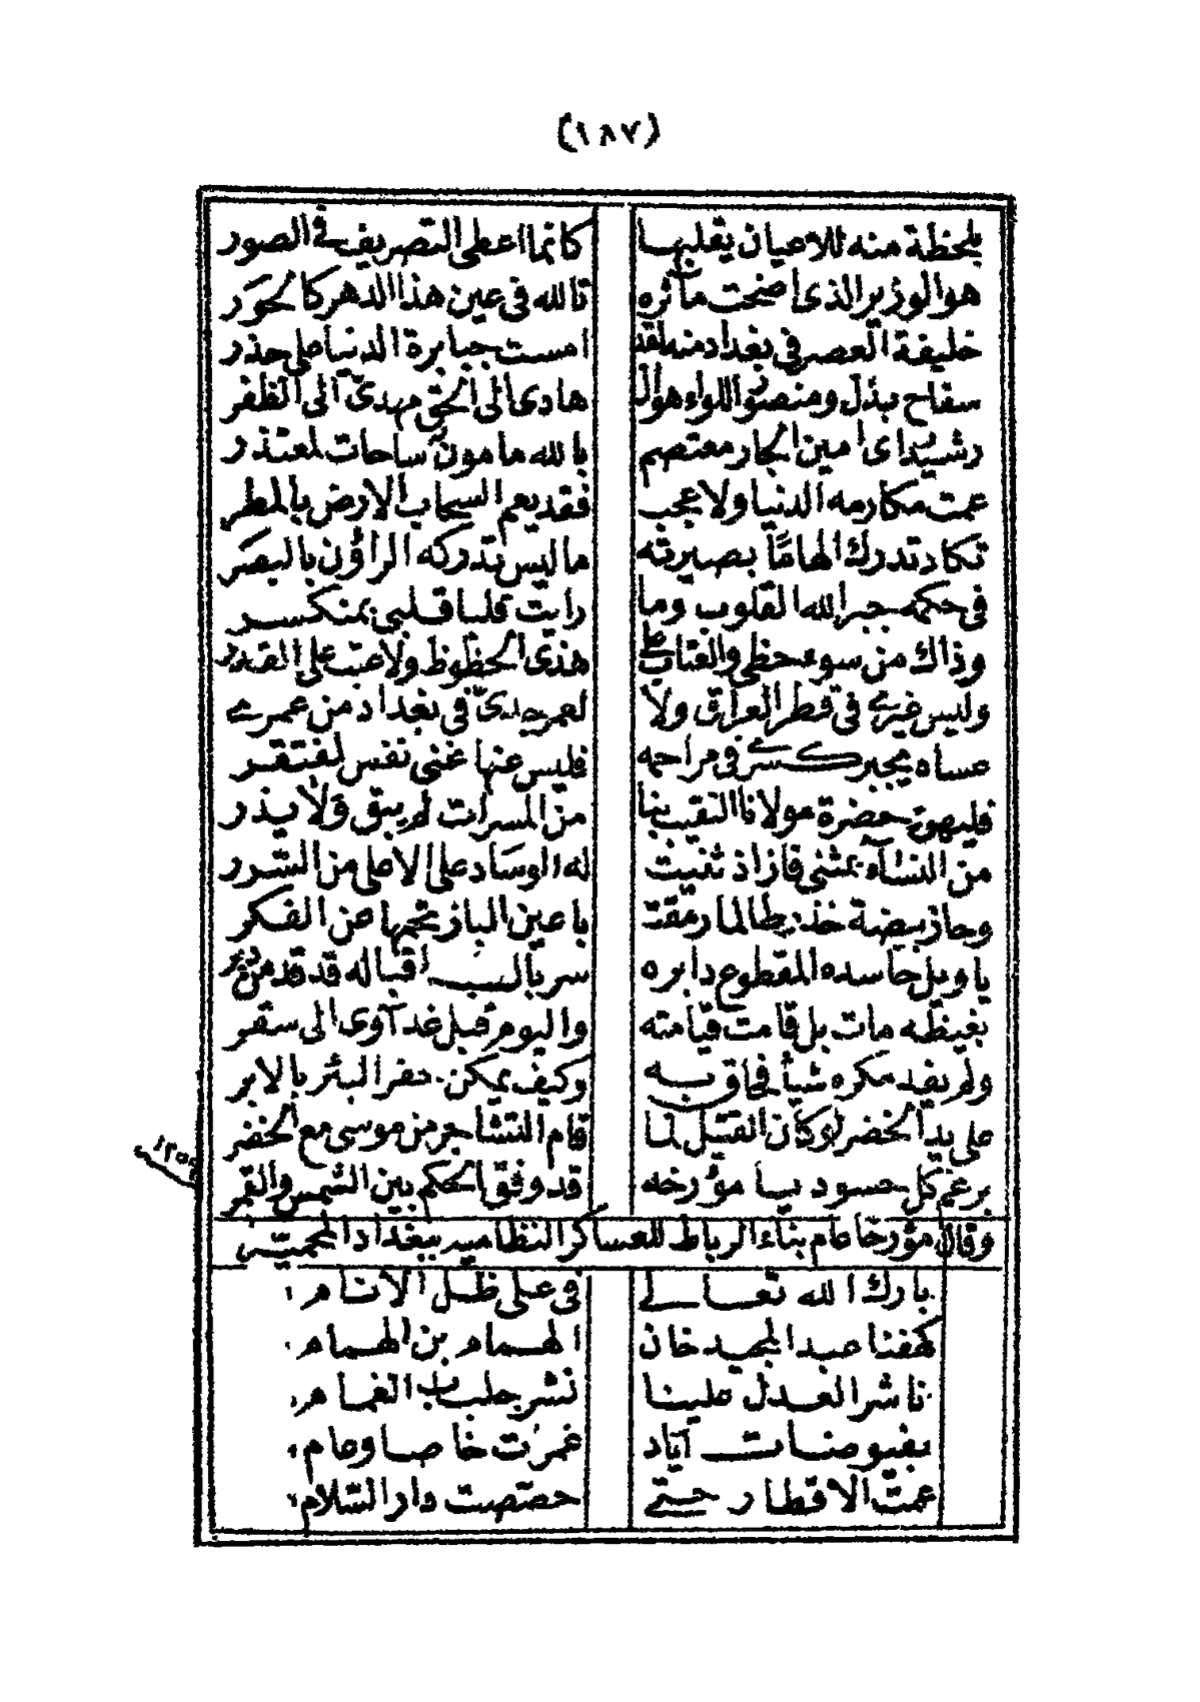 (١٨٧)
بلحظة منه للاعيان يقلبها كانما اعطى التصريف في الصور
هو الوزير الذى اضحت مآثره تالله فى عين هذا الدهر كالحوَر
خليفة العصر فى بغداد منه لقد امست جبابرة الدنيا على حذر
سفاح بذل ومنصور اللواء هو ال هادى الى الحق مهدىّ الى الظفر
رشيد اى امين الجار معتصم بالله مامون ساحات لمعتذر
عمت مكارمه الدنيا ولا عجب فقد يعم السحاب الارض بالمطر
تكاد تدرك الهامًا بصيرته ما ليس تدركه الراؤن بالبصَر
فى حكمه جبر الله القلوب وما رايت قلبا قلبى بمنكسر
وذاك من سوء حظى والعتاب على هذى الحظوظ ولا عتب على القدر
وليس غيرى فى قطر العراق ولا لعمر جدىّ فى بغداد من عمرى
عساه يجبر كسرى فى مراحمه فليس عنها غنى نفس لمفتقر
فليهن حضرة مولانا النقيب بنا من المسرات لم يبق ولا يذر
من النساء بمثنى فاز اذ ثنيت له الوسَاد على الاعلى من السّرر
وحاز بيضة خذر طالما رمقت با عين الباز تحمها عن الفكر
يا ويل حاسده المقطوع دابره سربال اقباله قد قد من دبر
بغيظه مات بل قامت قيامته واليوم قبل غد آوى الى سقر
ولم يفد مكره شيأ فحاق به وكيف يمكن حفر البئر بالابر
على يد الخضر لو كان القتيل لما قام التشاجر من موسى مع الخضر
برغم كل حسود بيا مؤرخه قد وثق الحكم بين الشمس والقمر
١٢٥٩
وقال مؤرخا عام بناء الرباط للعساكر النظاميه ببغداد المحميّه
بارك الله تعالى فى على ظل الانام
كهفنا عبد المجيد خان الهمام بن الهمام
ناشر العدل علينا نشر جلباب الغمام
بفيوضات آياد غمرت خاصا وعام
عمّت الاقطار حتى خصّصت دار السّلام